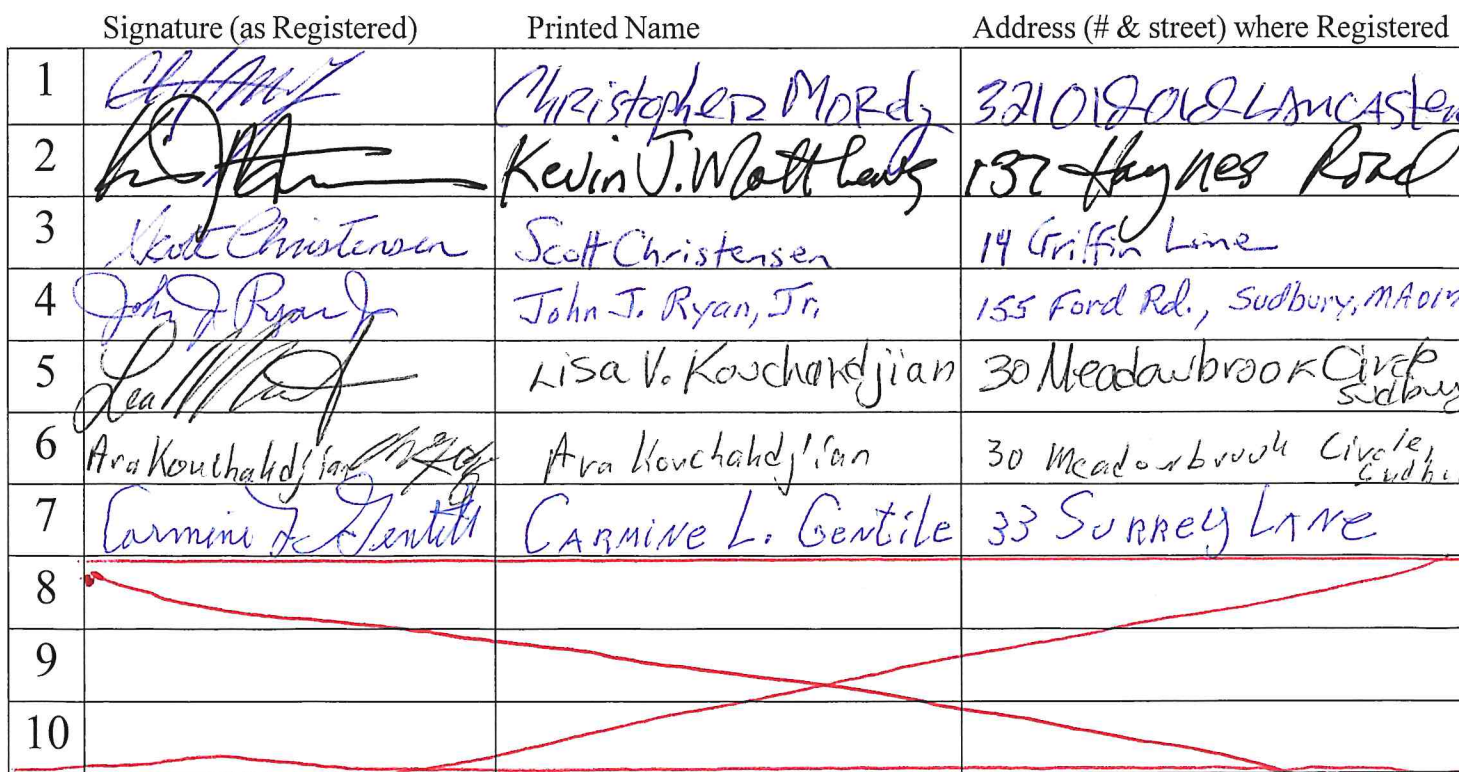 Signature (as Registered) Printed Name Address (# & street) where Registered
1 Christopher Lancaster
2 Kevin J. Matthews 137 Haynes Road
3 Scott Christensen Scott Christensen 14 Griffin Lane
4 John J Ryan Jr John J. Ryan, Jr. 155 Ford Rd., Sudbury, MA
5 Lisa V. Kouchakdjian 30 Meadowbrook Circle
Sudbury
6 Ara Kouchakdjian Ara Kouchakdjian 30 Meadowbrook Circle,
7 Carmine L. Gentile CARMINE L. GENTILE 33 SURREY LANE
8
9
10